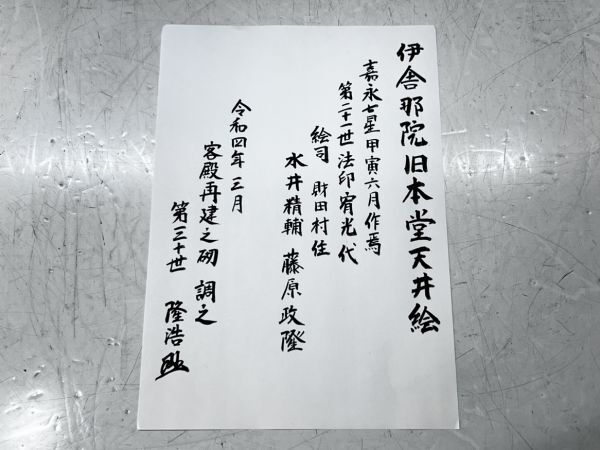 伊舎那院旧本堂天井絵
嘉永七星甲寅六月作焉
第二十一世法印宥光代
絵司 財田村住
水井精輔 藤原政隆
令和四年三月
客殿再建之砌 調之
第三十世 隆浩